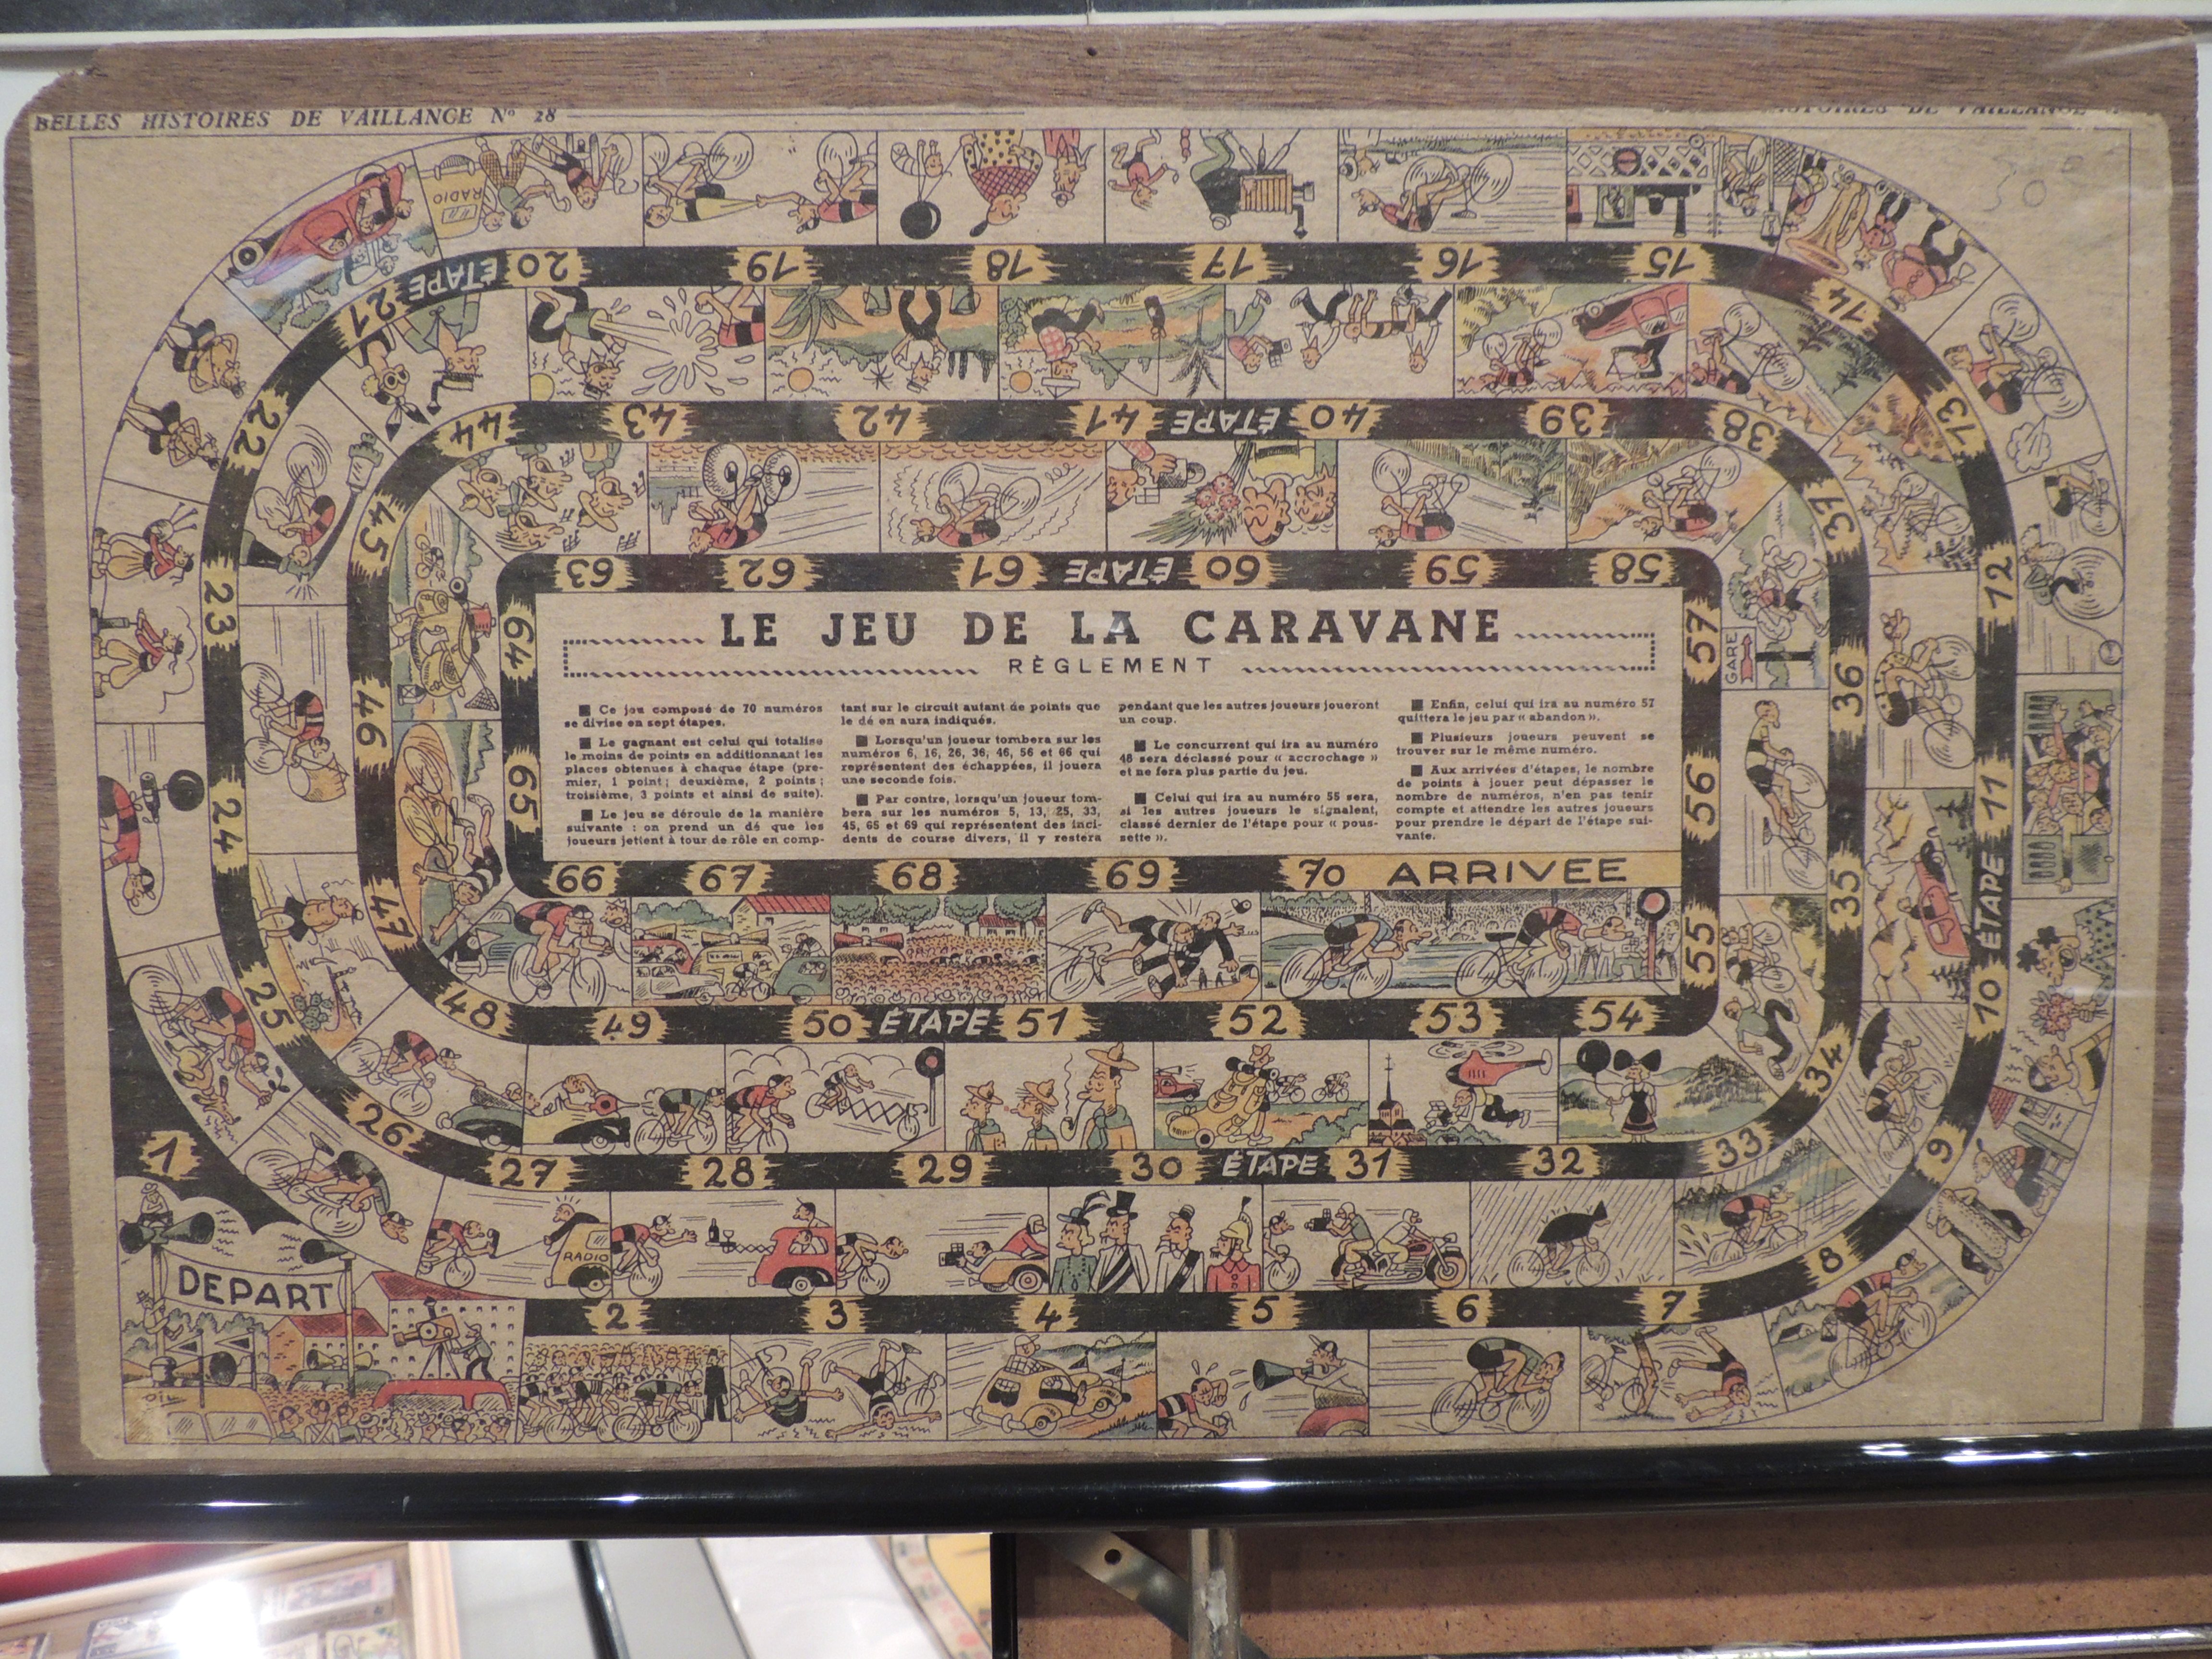 BELLES HISTOIRES DE VAILLANCE Nº 28
HISTOIRES DE VAILLANCE
RADIO
21 ÉTAPE 20 19 18 17 16 15 14
22 13
44 43 42 41 ÉTAPE 40 39 38
45 37
23 12
63 62 61 ÉTAPE 60 59 58
64 57
GARE
46 36
24 11
65 56
ÉTAPE
47 35
25 10
55
LE JEU DE LA CARAVANE
RÈGLEMENT
■ Ce jeu composé de 70 numéros
se divise en sept étapes.
■ Le gagnant est celui qui totalise
le moins de points en additionnant les
places obtenues à chaque étape (pre-
mier, 1 point ; deuxième, 2 points ;
troisième, 3 points et ainsi de suite).
■ Le jeu se déroule de la manière
suivante : on prend un dé que les
joueurs jettent à tour de rôle en comp-
tant sur le circuit autant de points que
le dé en aura indiqués.
■ Lorsqu'un joueur tombera sur les
numéros 6, 16, 26, 36, 46, 56 et 66 qui
représentent des échappées, il jouera
une seconde fois.
■ Par contre, lorsqu'un joueur tom-
bera sur les numéros 5, 13, 25, 33,
45, 65 et 69 qui représentent des inci-
dents de course divers, il y restera
pendant que les autres joueurs joueront
un coup.
■ Le concurrent qui ira au numéro
48 sera déclassé pour « accrochage »
et ne fera plus partie du jeu.
■ Celui qui ira au numéro 55 sera,
si les autres joueurs le signalent,
classé dernier de l'étape pour « pous-
sette ».
■ Enfin, celui qui ira au numéro 57
quittera le jeu par « abandon ».
■ Plusieurs joueurs peuvent se
trouver sur le même numéro.
■ Aux arrivées d'étapes, le nombre
de points à jouer peut dépasser le
nombre de numéros, n'en pas tenir
compte et attendre les autres joueurs
pour prendre le départ de l'étape sui-
vante.
66 67 68 69 70 ARRIVEE
48 49 50 ÉTAPE 51 52 53 54
34
26 27 28 29 30 ÉTAPE 31 32 33
9
1
8
RADIO
DEPART
2 3 4 5 6 7